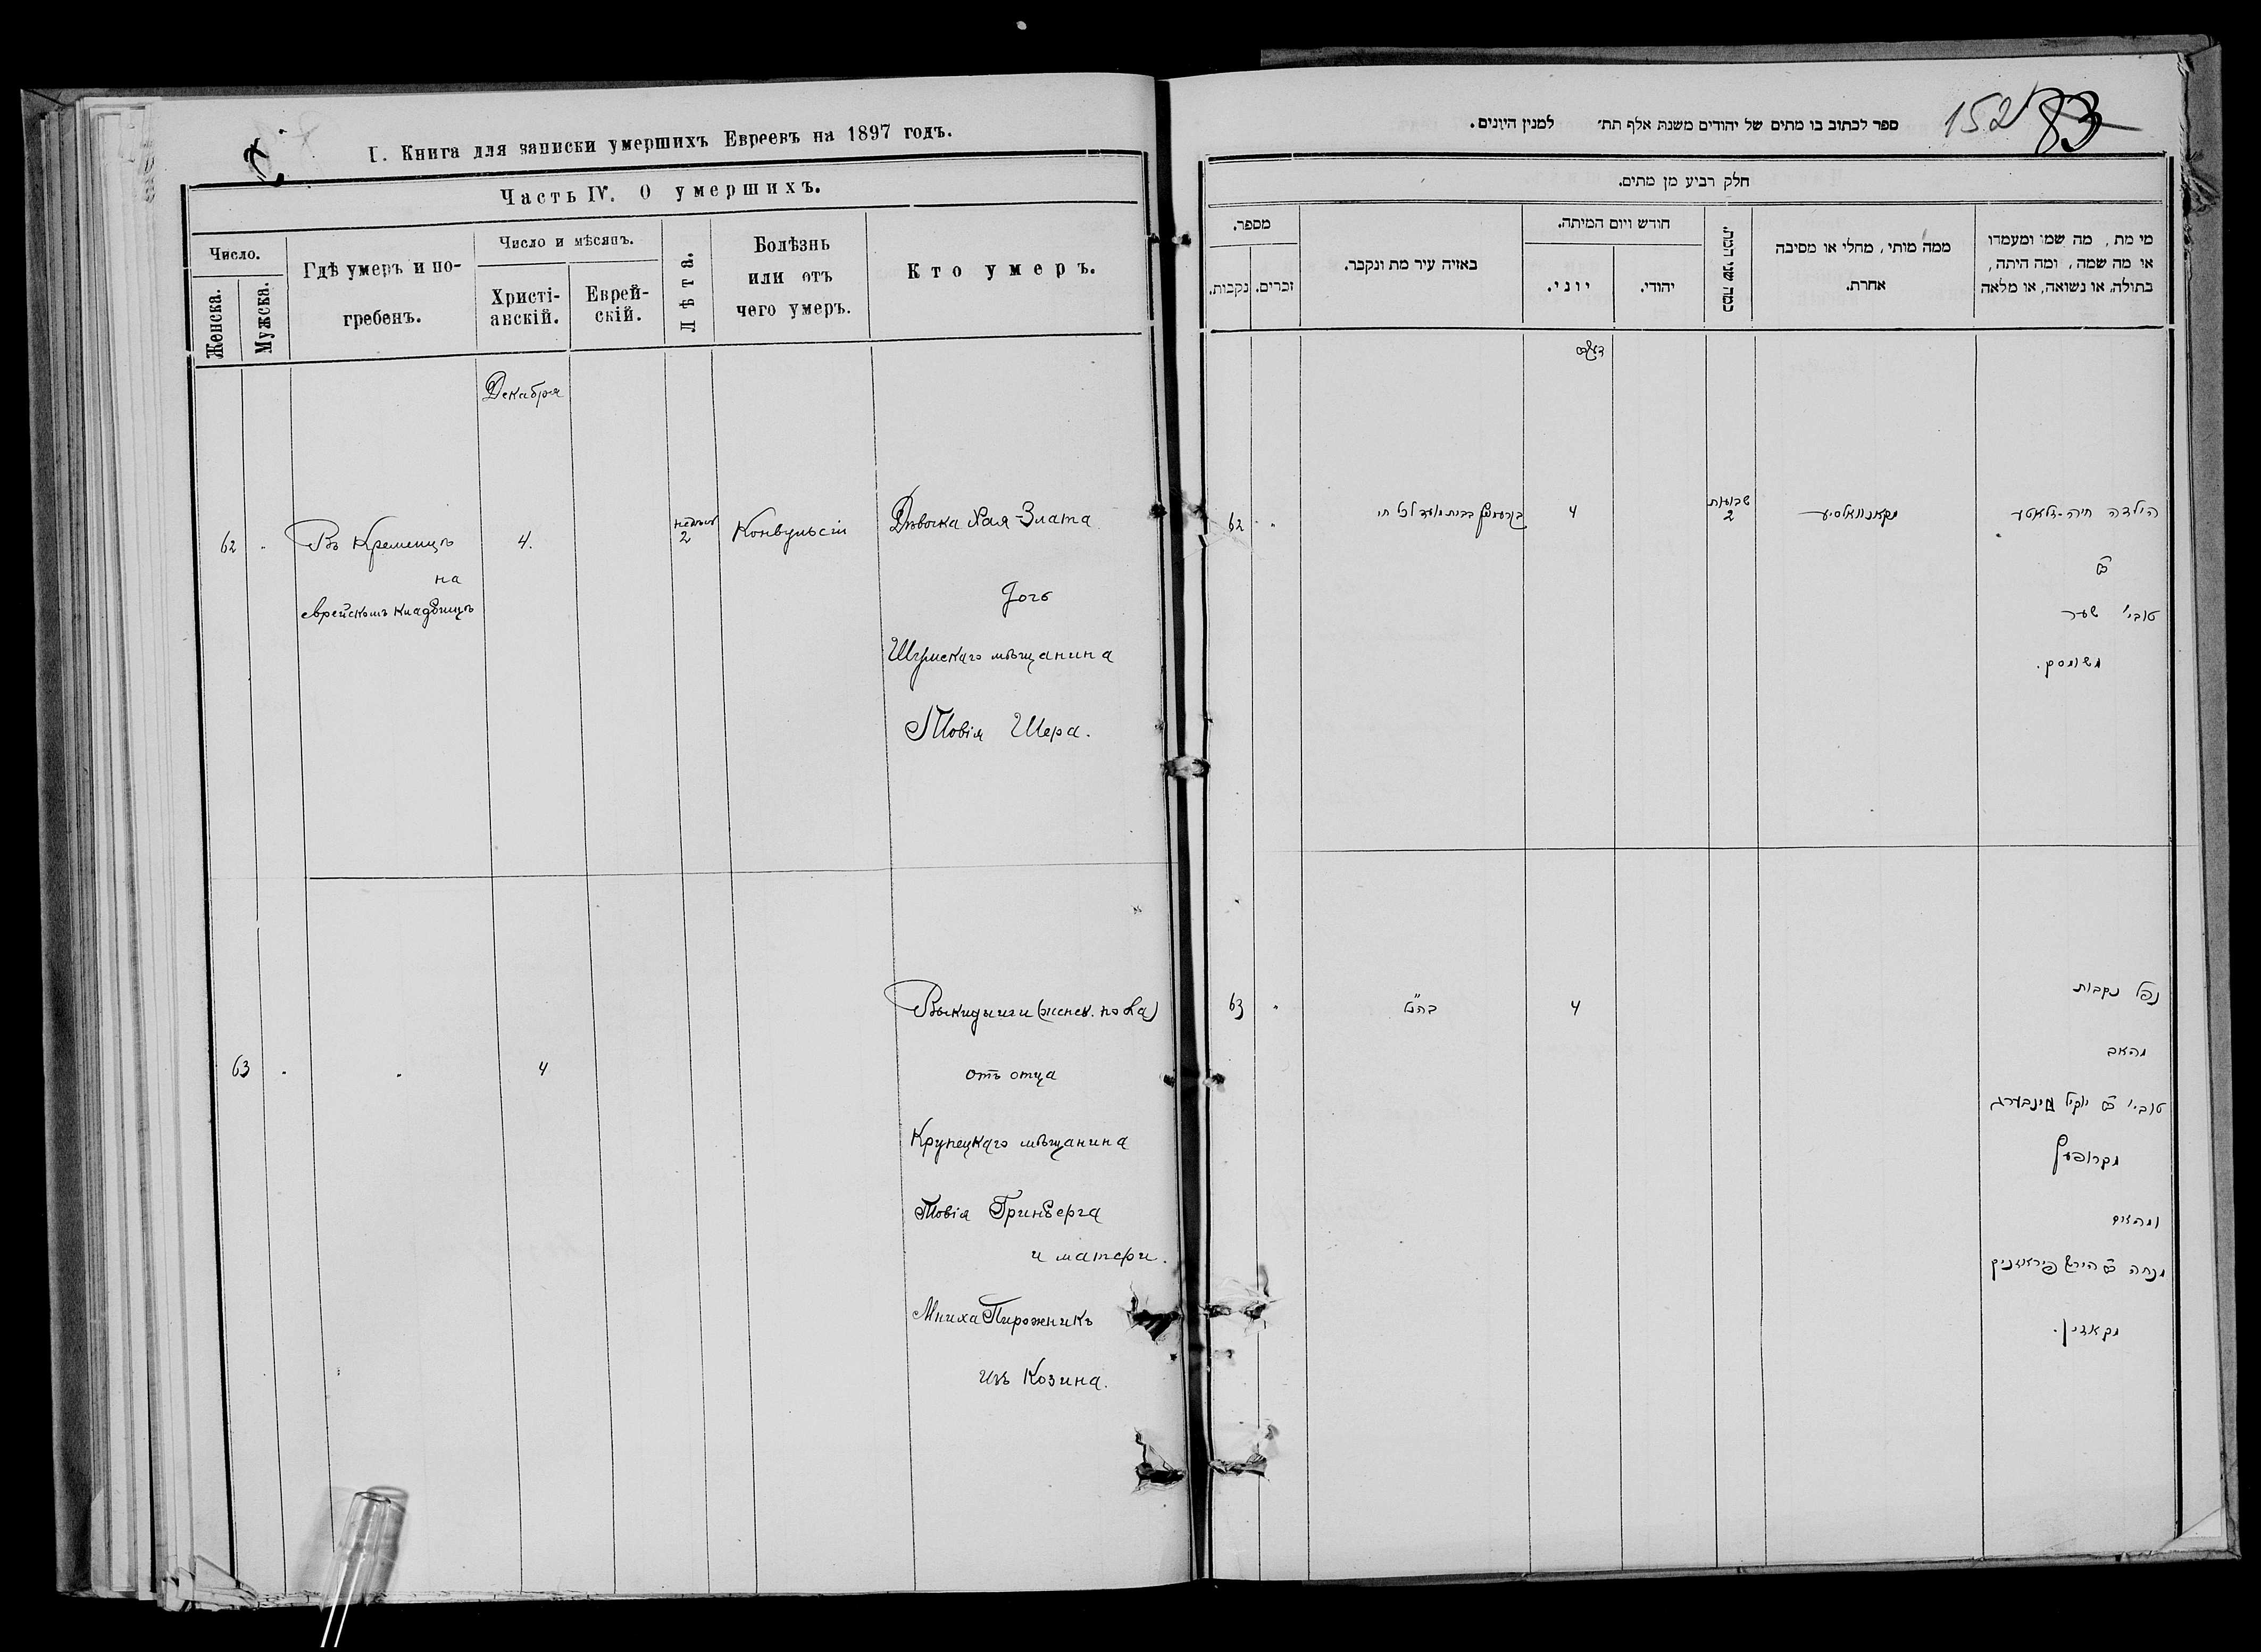 I. Книга для записки умершихъ Евреевъ на 1897 годъ.
Часть IV. О умершихъ.
Число.
Женска.
Мужска.
Гдѣ умеръ и по-
гребенъ.
Число и мѣсяцъ.
Христі-
анскій.
Еврей-
скій.
Лѣта.
Болѣзнь
или отъ
чего умеръ.
Кто умеръ.
Декабря
62 " Въ Кременцѣ 4. 2 Конвульсіи Дѣвочка Хая-Злата
на
еврейскомъ кладбищѣ
дочь
Шумскаго мѣщанина
Товія Шера.
63 " " 4 Выкидыши (женск. пола)
отъ отца
Крупецкаго мѣщанина
Товія Гринберга
и матери.
Мниха Пирожникъ
изъ Козина.
152 83
ספר לכתוב בו מתים של יהודים משנת אלף תת׳ למנין היונים.
חלק רביע מן מתים.
מספר.
נקבות.
זכרים.
באיזה עיר מת ונקבר.
חודש ויום המיתה.
יוני.
יהודי.
כמה שני המת.
ממה מותי, מחלי או מסיבה
אחרת.
מי מת, מה שמו ומעמדו
או מה שמה, ומה היתה,
בתולה, או נשואה, או מלאה
62 " 4 שבועות 2 הילדה חיה-זלאטע
בת
טובי' שער
משומסק.
63 " 4 נפל נקבות
מהאב
טובי' יוקיל
מקרופעץ
ומהאם
מנחה בת הירש פיראזניק
מקאזין.